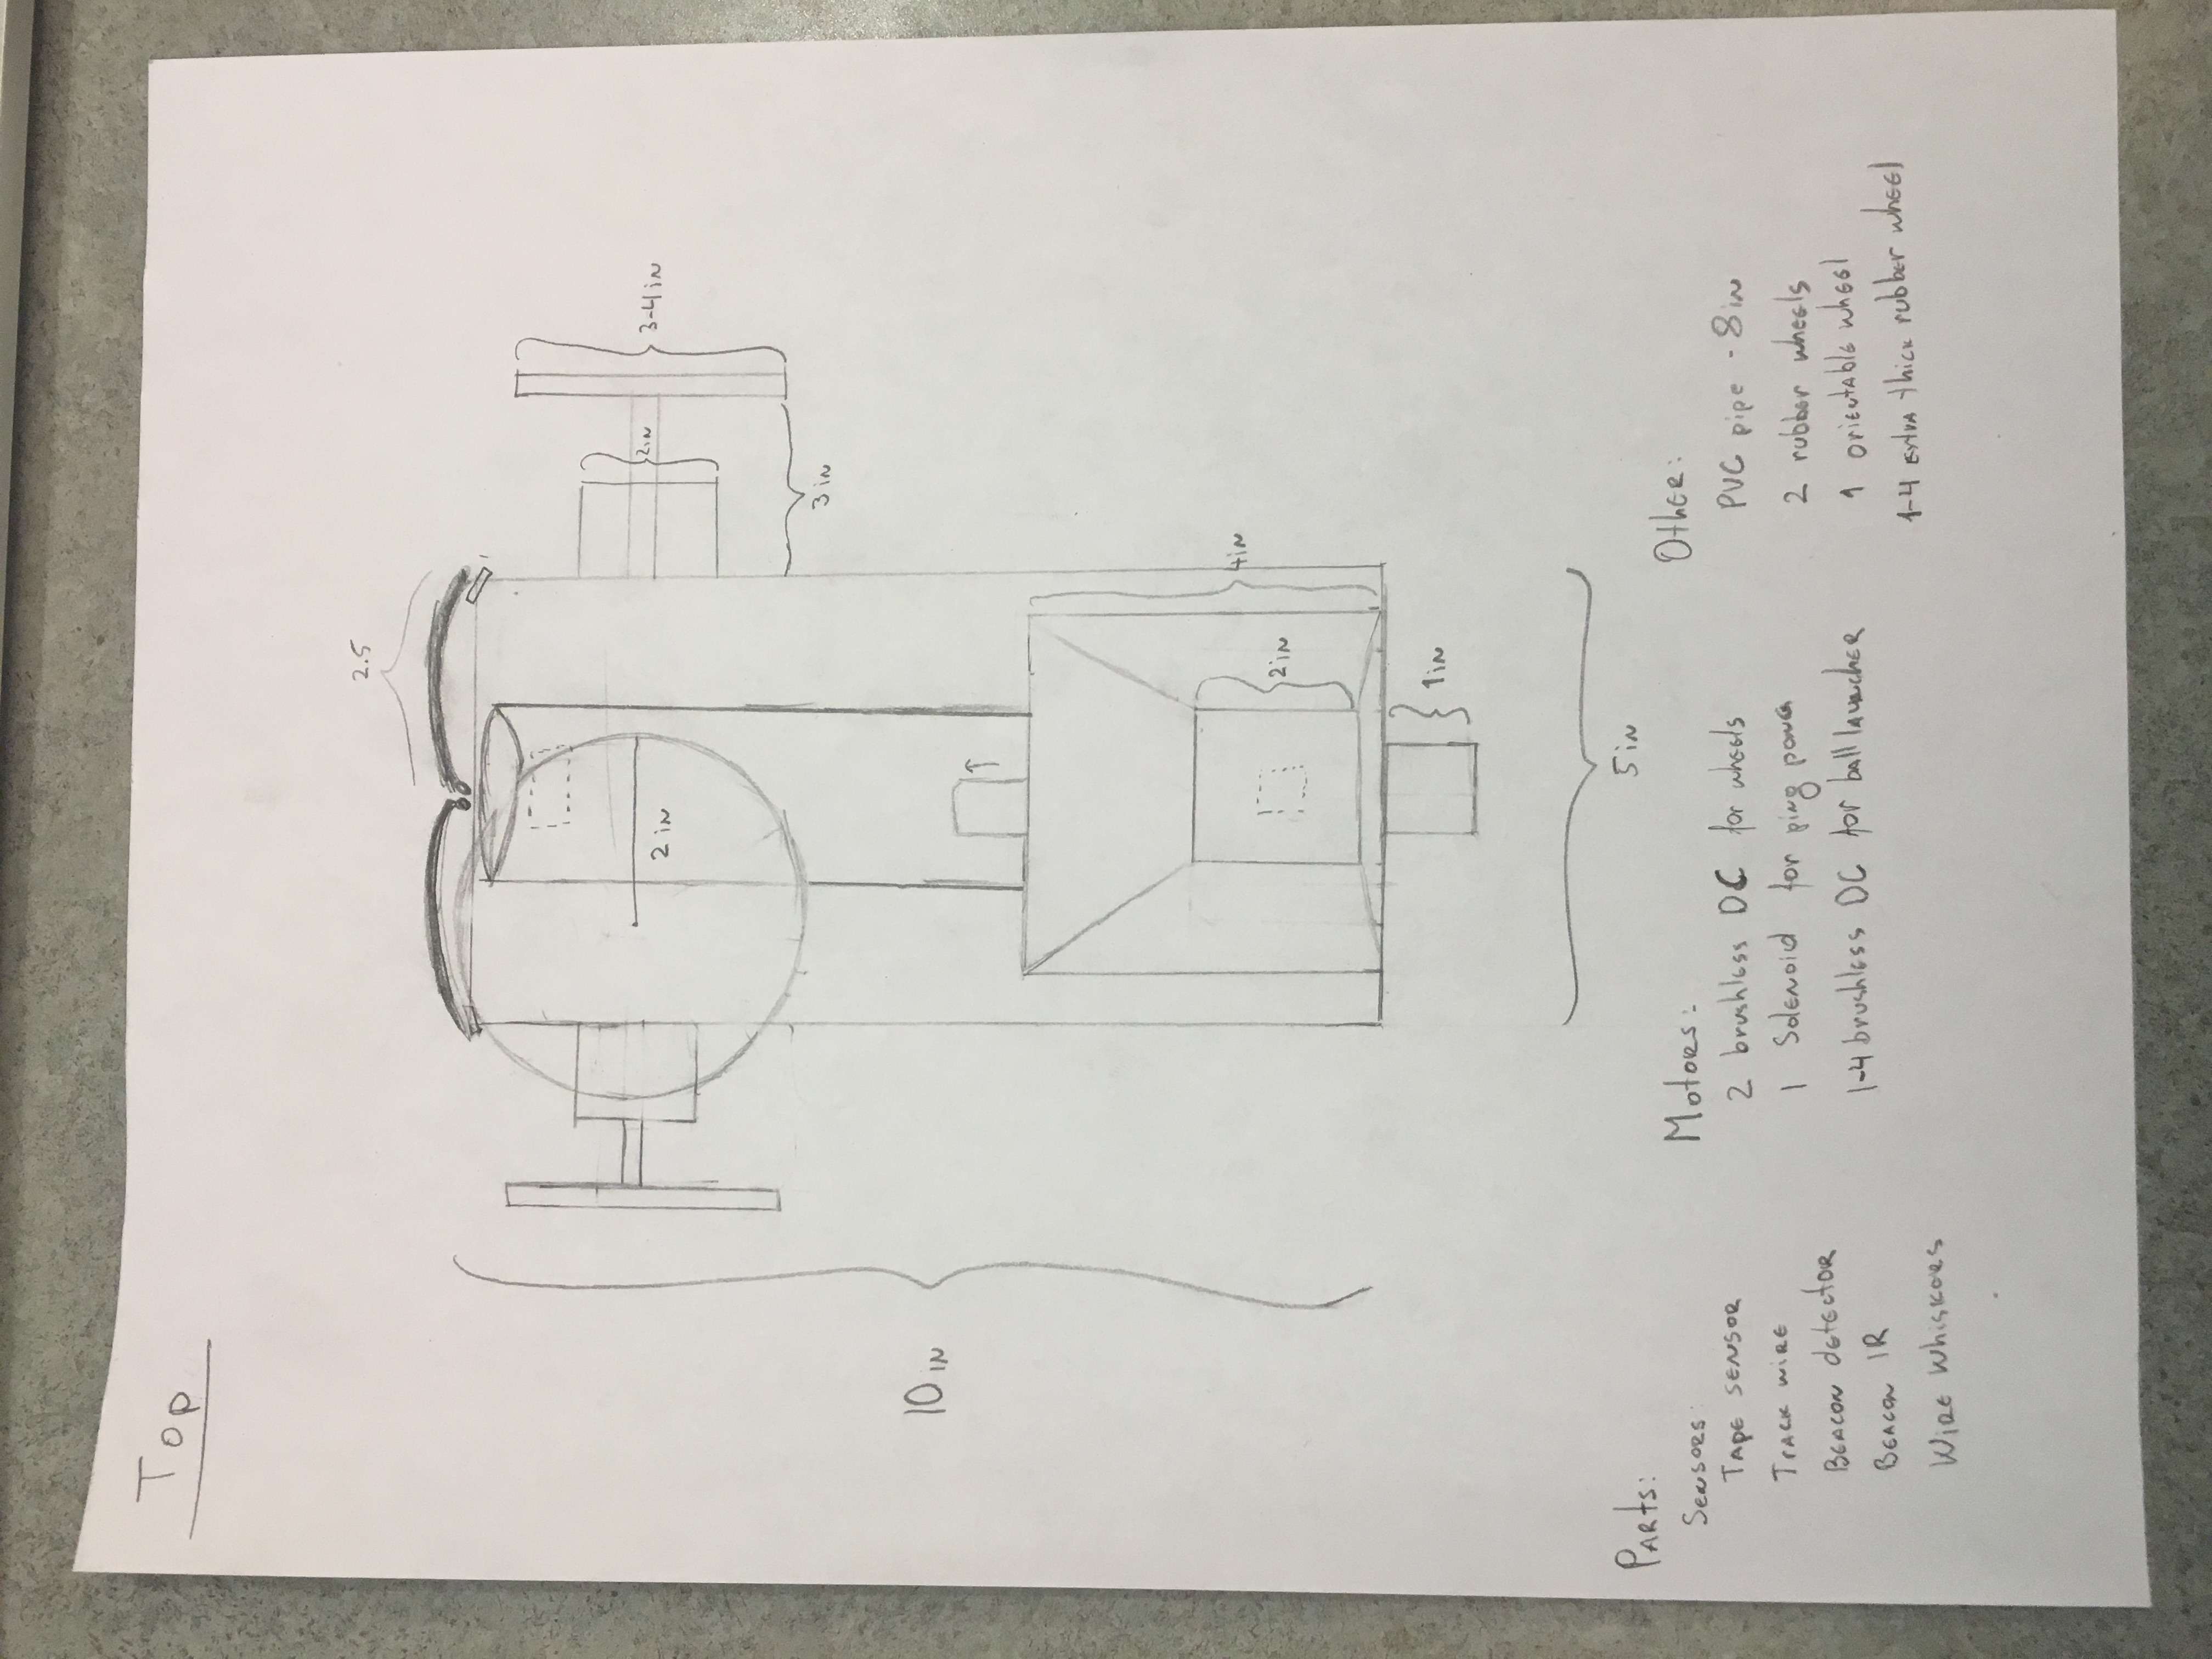 Top
2.5
2 in
2in
3-4 in
3 in
10 in
4in
2in
1in
5 in
Parts:
Sensors:
Tape sensor
Track wire
Beacon detector
Beacon IR
Wire Whiskers
Motors:
2 brushless DC for wheels
1 Solenoid for ping pong
1-4 brushless DC for ball launcher
Other:
PVC pipe - 8 in
2 rubber wheels
1 orientable wheel
1-4 extra thick rubber wheel